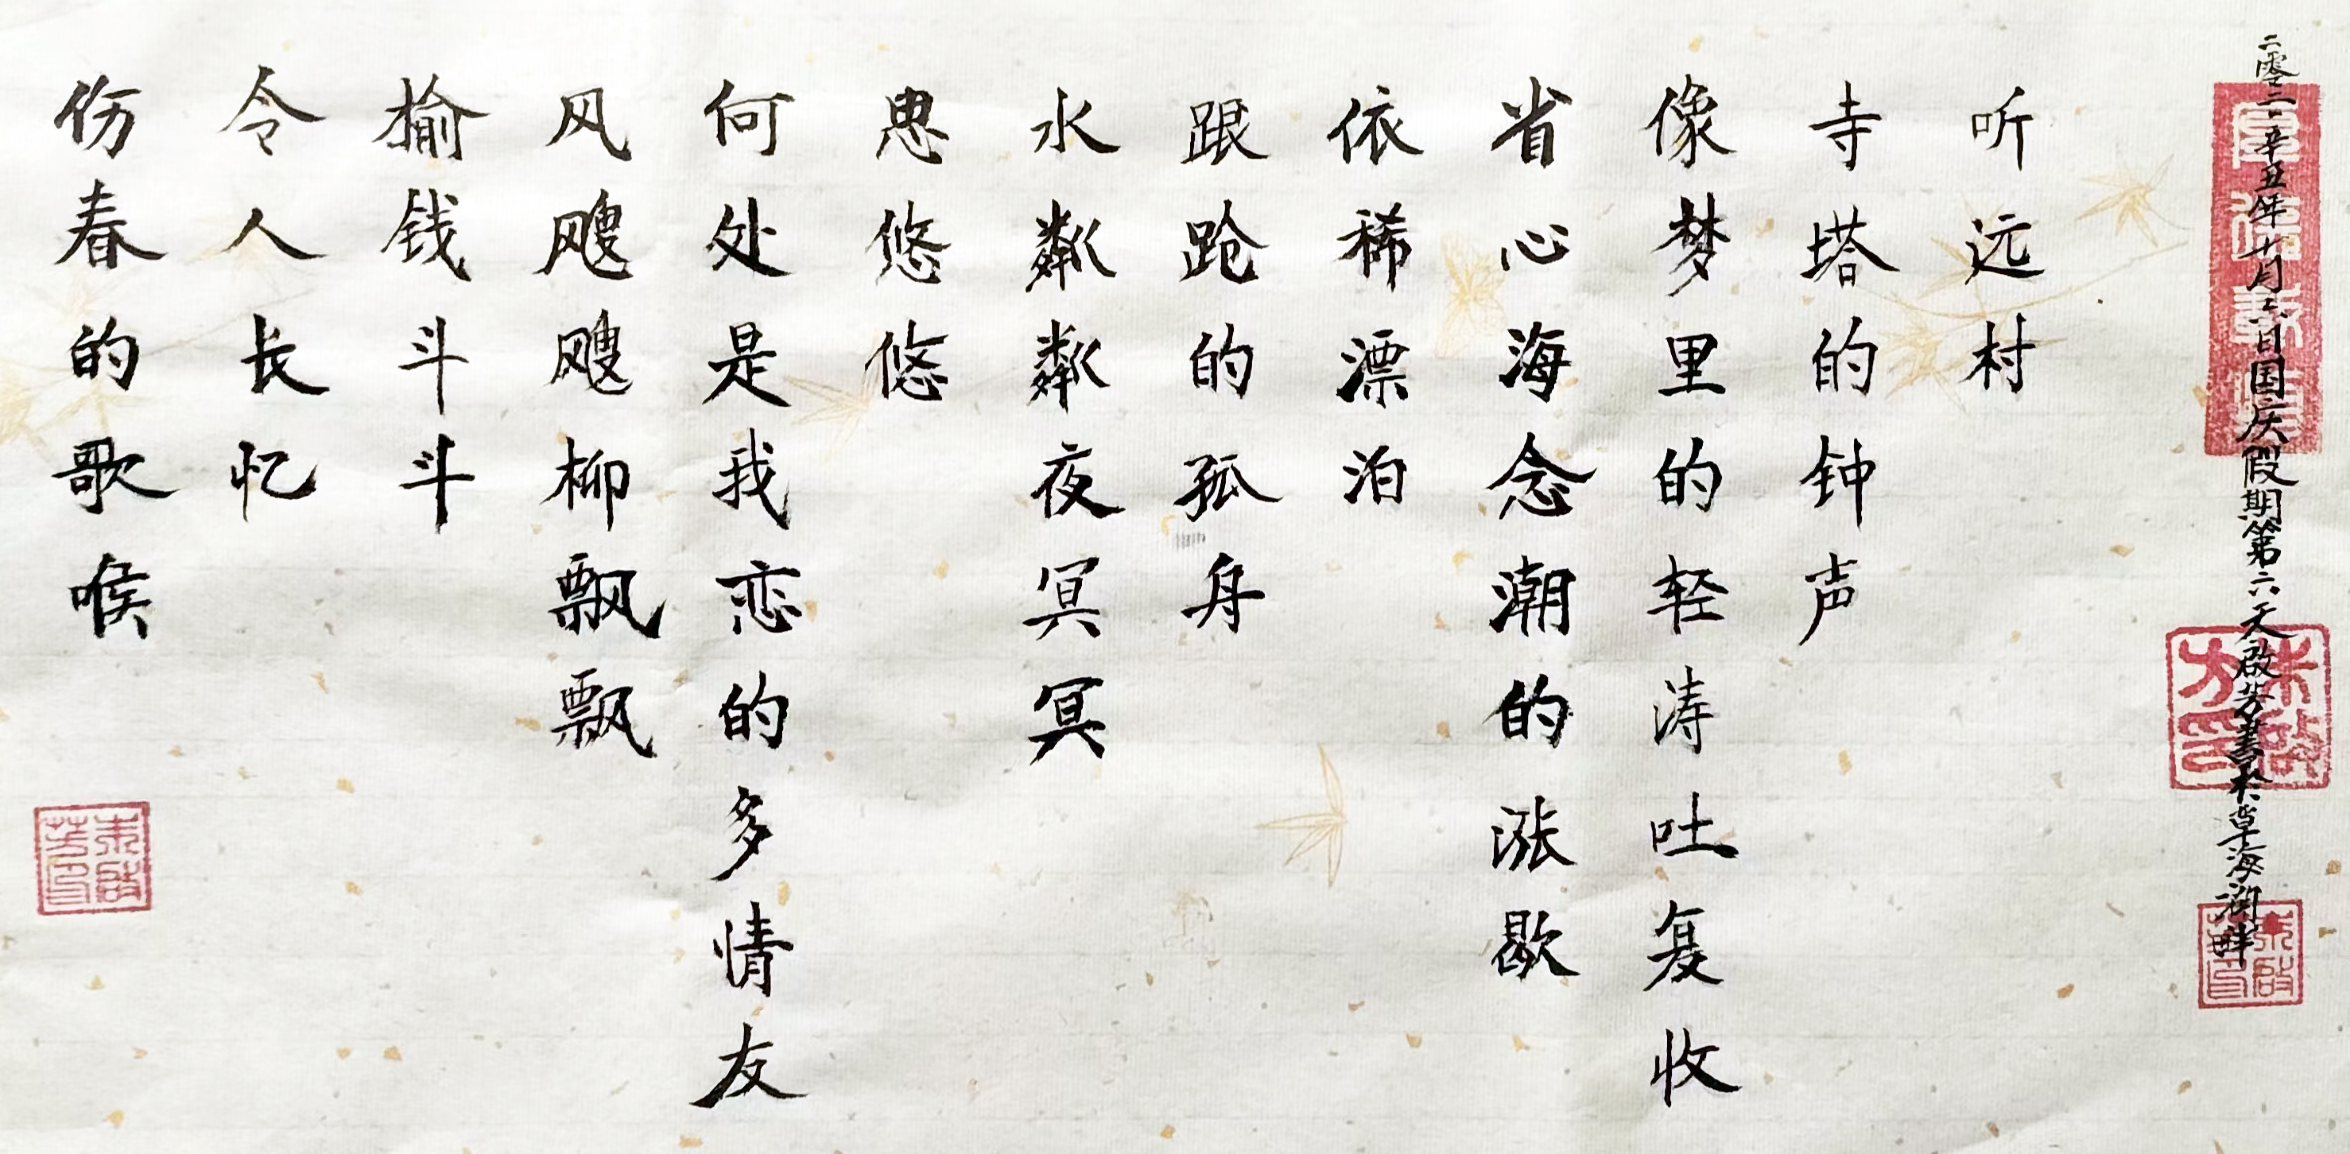 二零二一辛丑年十月六日国庆假期第六天啟芳書於草海湖畔
听远村
寺塔的钟声
像梦里的轻涛吐复收
省心海念潮的涨歇
依稀漂泊
跟跄的孤舟
水粼粼夜冥冥
思悠悠
何处是我恋的多情友
风飕飕柳飘飘
榆钱斗斗
令人长忆
伤春的歌喉
朱啟芳印